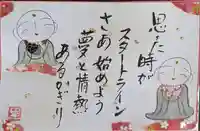 思った時が
スタートライン
さあ 始めよう
夢と情熱
あるかぎり